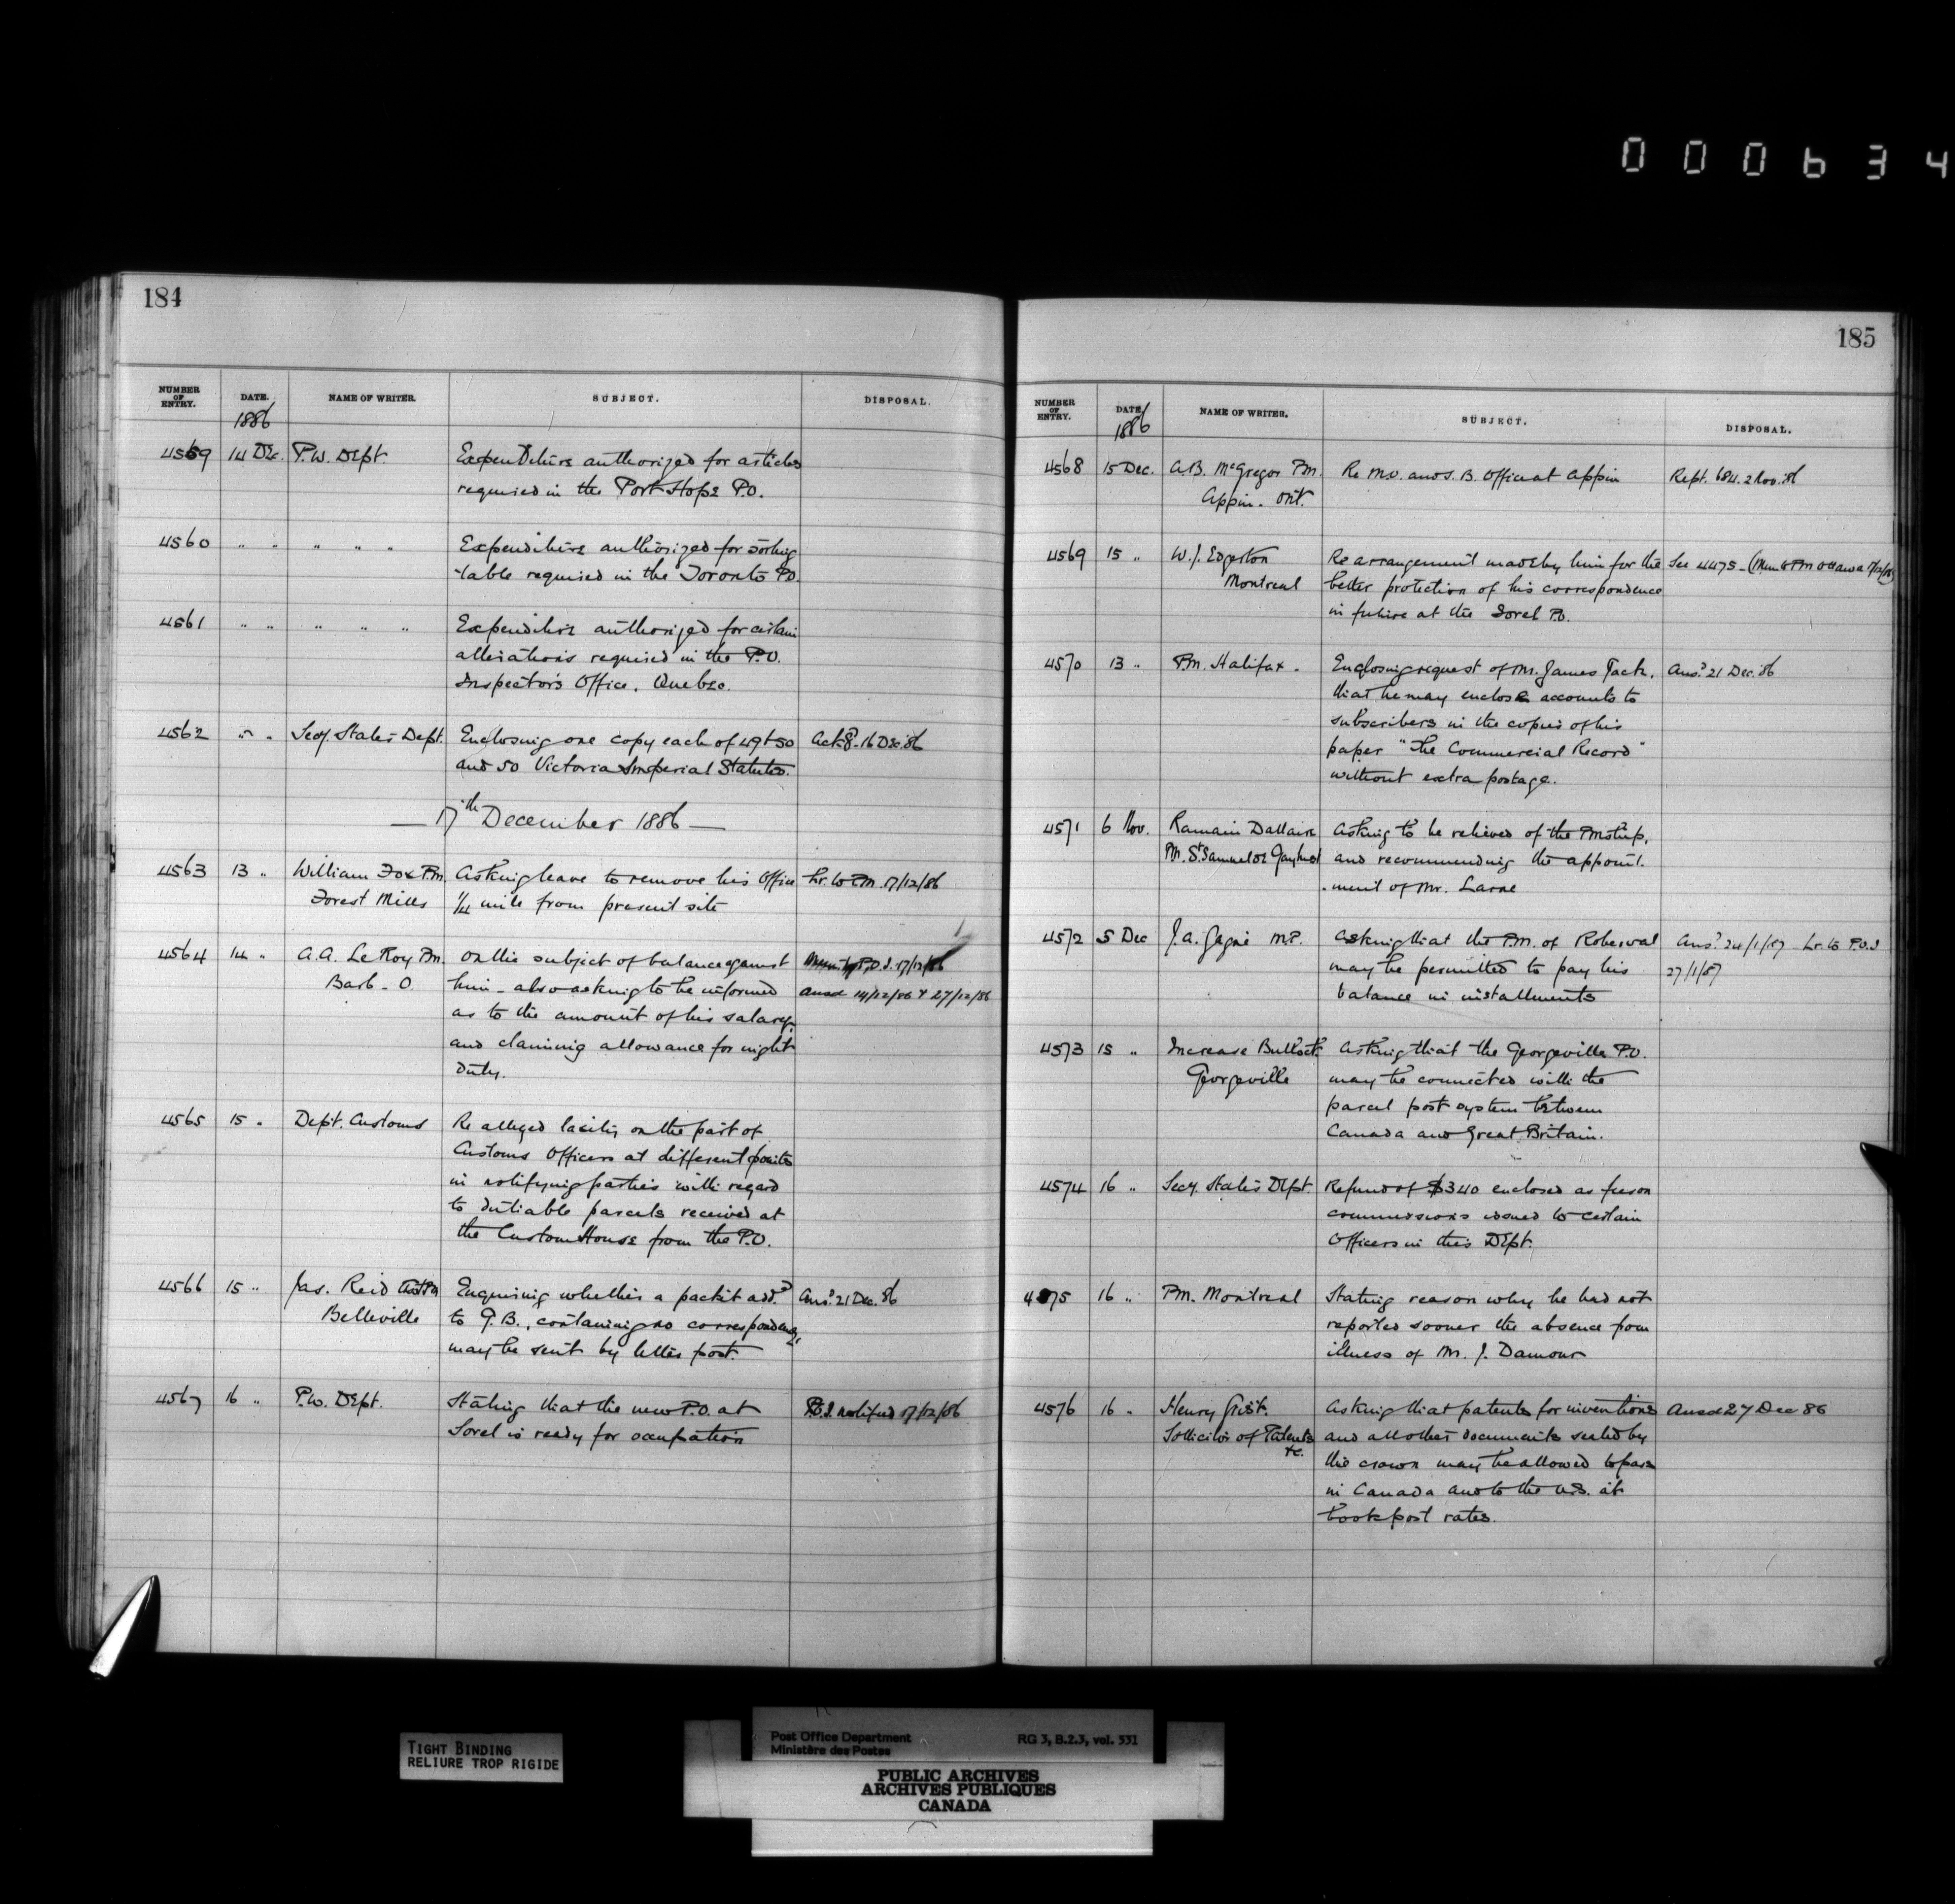 000634
184
NUMBER OF ENTRY. DATE. NAME OF WRITER. SUBJECT. DISPOSAL.
1886
4559 14 Dec. P.W. Dept. Expenditure authorized for articles
required in the Port Hope P.O.
4560 " " " " " Expenditure authorized for sorting
table required in the Toronto P.O.
4561 " " " " " Expenditure authorized for certain
alterations required in the P.O.
Inspector's Office, Quebec.
4562 " " Secy. State's Dept. Enclosing one copy each of 49 & 50 Ackd. 16 Dec '86
and 50 Victoria Imperial Statutes.
— 17th December 1886 —
4563 13 " William Fox P.M. Asking leave to remove his Office Lr. to P.M. 17/12/86
Forest Mills 1/4 mile from present site
4564 14 " A.A. Le Roy P.M. On the subject of balance against P.O.I. 17/12/86
Barb - O. him - also asking to be informed ansd 14/12/86 & 27/12/86
as to the amount of his salary
and claiming allowance for night
duty.
4565 15 " Dept. Customs Re alleged laxity on the part of
Customs Officers at different points
in notifying parties with regard
to dutiable parcels received at
the Custom House from the P.O.
4566 15 " Jas. Reid Enquiring whether a packet addd. Ansd. 21 Dec. 86
Belleville to G.B., containing no correspondence,
may be sent by letter post.
4567 16 " P.W. Dept. Stating that the new P.O. at P.O.I. notified 17/12/86
Sorel is ready for occupation
185
NUMBER OF ENTRY. DATE. NAME OF WRITER. SUBJECT. DISPOSAL.
1886
4568 15 Dec. A.B. McGregor P.M. Re M.O. and S.B. Office at Appin Rept. 684. 2 Nov. '86
Appin - Ont.
4569 15 " W.J. Edgerton Re arrangement made by him for the See 4475 - (Mem to P.M. Ottawa 17/12/86)
Montreal better protection of his correspondence
in future at the Sorel P.O.
4570 13 " P.M. Halifax - Enclosing request of Mr. James Jack, Ansd. 21 Dec. '86
that he may enclose accounts to
subscribers in the copies of his
paper "The Commercial Record"
without extra postage.
4571 6 Nov. Romain Dallaire Asking to be relieved of the Pmship,
P.M. St. Samuel de Gayhurst and recommending the appoint-
-ment of Mr. Larue
4572 5 Dec J.A. Gagné M.P. Asking that the P.M. of Roberval Ansd. 24/1/87 Lr. to P.O.I
may be permitted to pay his 27/1/87
balance in installments
4573 15 " Increase Bullock Asking that the Georgeville P.O.
Georgeville may be connected with the
parcel post system between
Canada and Great Britain.
4574 16 " Secy. State's Dept. Refund of $340 enclosed as fees on
commissions issued to certain
Officers in this Dept.
4575 16 " P.M. Montreal Stating reason why he had not
reported sooner the absence from
illness of Mr. J. Damour
4576 16 " Henry Grist. Asking that patents for inventions Ansd 27 Dec 86
Solicitor of Patents and all other documents sealed by
&c. the crown may be allowed to pass
in Canada and to the U.S. at
book post rates.
TIGHT BINDING
RELIURE TROP RIGIDE
Post Office Department RG 3, B.2.3, vol. 531
Ministère des Postes
PUBLIC ARCHIVES
ARCHIVES PUBLIQUES
CANADA